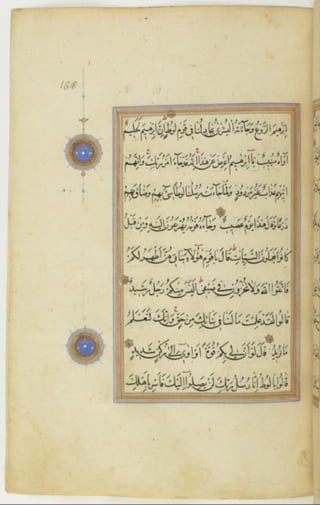 168
ابرهيم الروع وجاءته البشرى يجادلنا في قوم لوط ان ابرهيم لحليم
اواه منيب يا ابرهيم اعرض عن هذا انه قد جاء امر ربك وانهم
اتيهم عذاب غير مردود ولما جاءت رسلنا لوطا سيء بهم وضاق بهم
ذرعا وقال هذا يوم عصيب وجاءه قومه يهرعون اليه ومن قبل
كانوا يعملون السيئات قال يا قوم هؤلاء بناتي هن اطهر لكم
فاتقوا الله ولا تخزون في ضيفي اليس منكم رجل رشيد
قالوا لقد علمت ما لنا في بناتك من حق وانك لتعلم
ما نريد قال لو ان لي بكم قوة او اوي الى ركن شديد
قالوا يا لوط انا رسل ربك لن يصلوا اليك فاسر باهلك